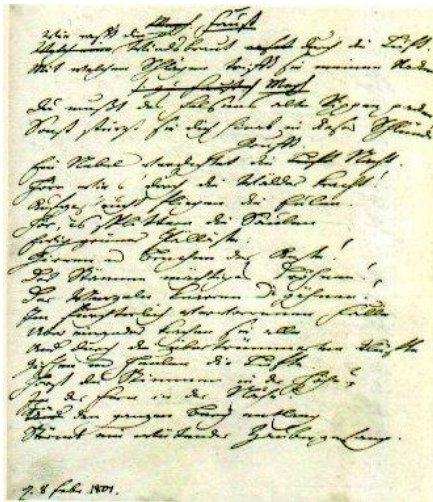 Faust
Wie rast die Windsbraut durch die Luft.
Mit welchen Schlägen trifft sie meinen Nacken
Du mußt des Felsens alte Rippen packen
Sonst stürzt sie dich hinab in dieser Schlünde
Gruft.
Ein Nebel verdichtet die Nacht.
Höre wie's durch die Wälder kracht!
Aufgescheucht fliegen die Eulen.
Hör, es splittern die Säulen
Ewig grüner Palläste.
Girren u brechen der Aeste!
Der Stämme mächtiges Dröhnen!
Der Wurzeln Knarren u gähnen!
Im fürchterlich verworrenen Falle
Uber einander krachen sie alle
Und durch die übertrümmerten Klüfte
Zischen und heulen die Lüfte
Hörst du Stimmen in der Höhe?
In der Ferne in der Nähe?
Ja den ganzen Berg entlang
Strömt ein wütender Zaubergesang.
8 Febr. 1801.